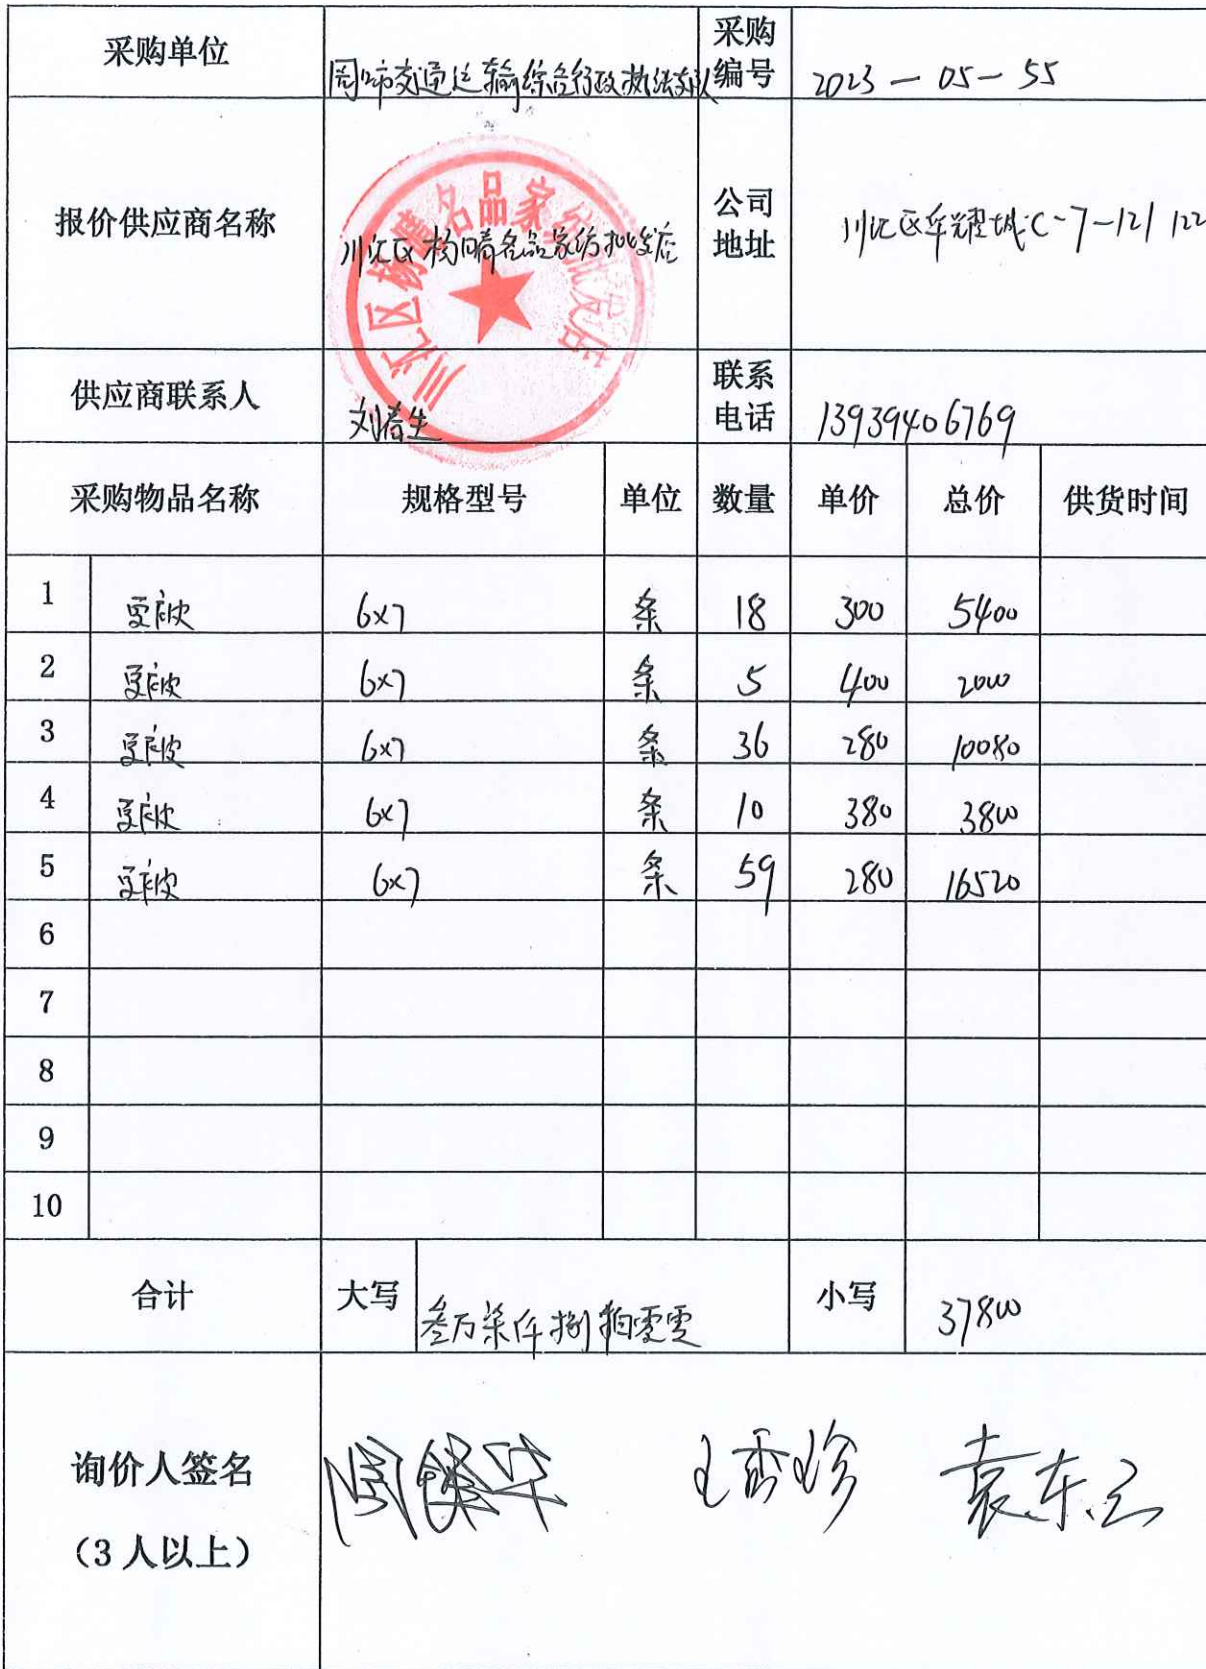 采购单位 周口市交通运输综合行政执法支队 采购编号 2023-05-55
报价供应商名称 川汇区杨晴名品家纺批发店 公司地址 川汇区华耀城C-7-121 122
供应商联系人 刘春生 联系电话 13939406769
采购物品名称 规格型号 单位 数量 单价 总价 供货时间
1 夏凉被 6x7 条 18 300 5400
2 夏凉被 6x7 条 5 400 2000
3 夏凉被 6x7 条 36 280 10080
4 夏凉被 6x7 条 10 380 3800
5 夏凉被 6x7 条 59 280 16520
6
7
8
9
10
合计 大写 叁万柒仟捌佰零零 小写 37800
询价人签名
(3人以上) 袁东云